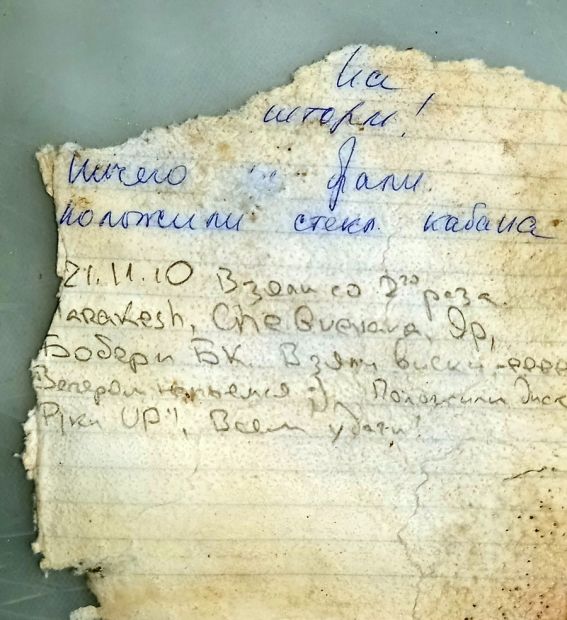 на
шторм!
ничего взяли.
положили стекл. кабана
21.11.10 Взяли со 2го раза.
arakesh, Che Guevara, Др,
Бобёры БК. Взяли виски
Вечером напьемся :) Положили диск
UP", Всем удачи!